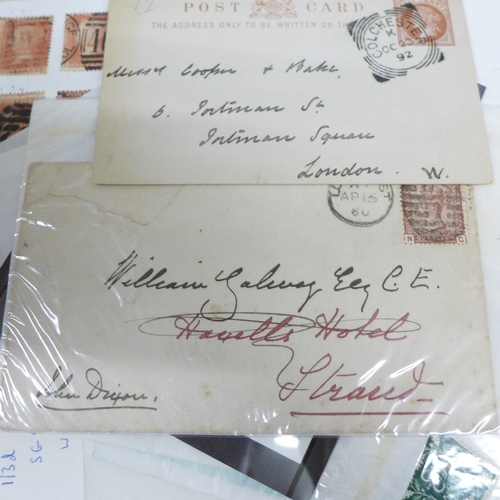 POST CARD
THE ADDRESS ONLY TO BE WRITTEN
COLCHESTER
K
OC 23
92
Messrs Cooper & Bake,
6. Portman St
Portman Square
London. W.
AP 16
80
N G
William Galway Esq C.E.
Haxells Hotel
Strand
John Dixon.
1/3d
SG
W